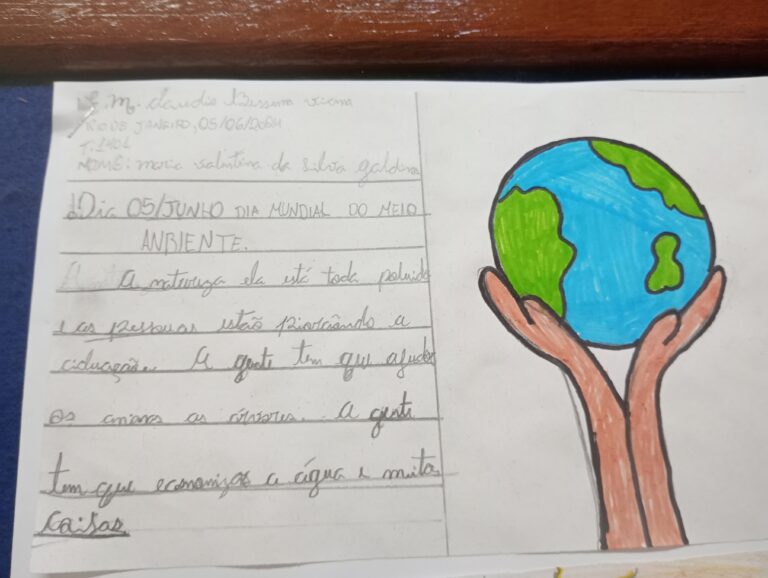 E. M. Claudio Besserm viana
RIO DE JANEIRO, 05/06/2024
T: 1401
NOME: maria valentina da Silva galdino
Dia 05/JUNHO DIA MUNDIAL DO MEIO
ANBIENTE.
A natureza ela está toda poluida
e as pessoas estão piorando a
A gente tem que ajudar
os animas as árvores. A gente
tem que economizar a água e muitas
coisas